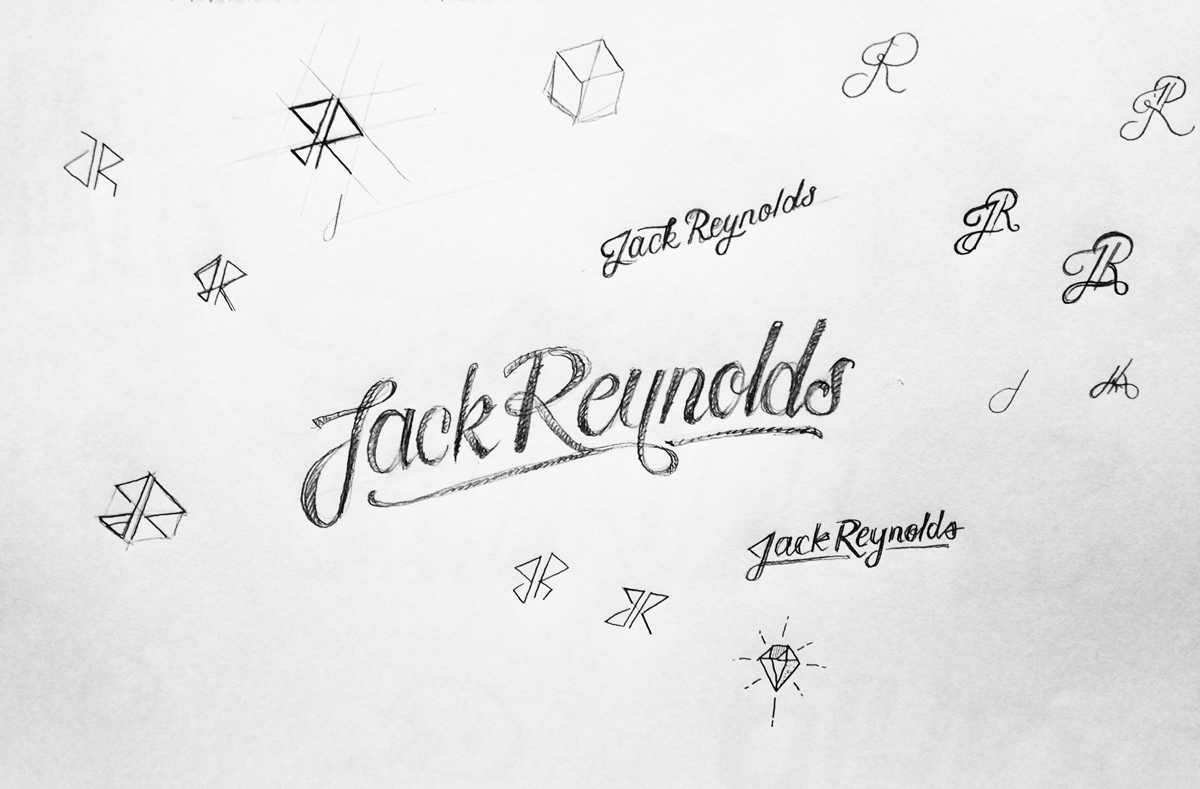 R
JR
JR
JR
JR
Jack Reynolds
JR
JR
JR
Jack Reynolds
J
JR
Jack Reynolds
JR
JR